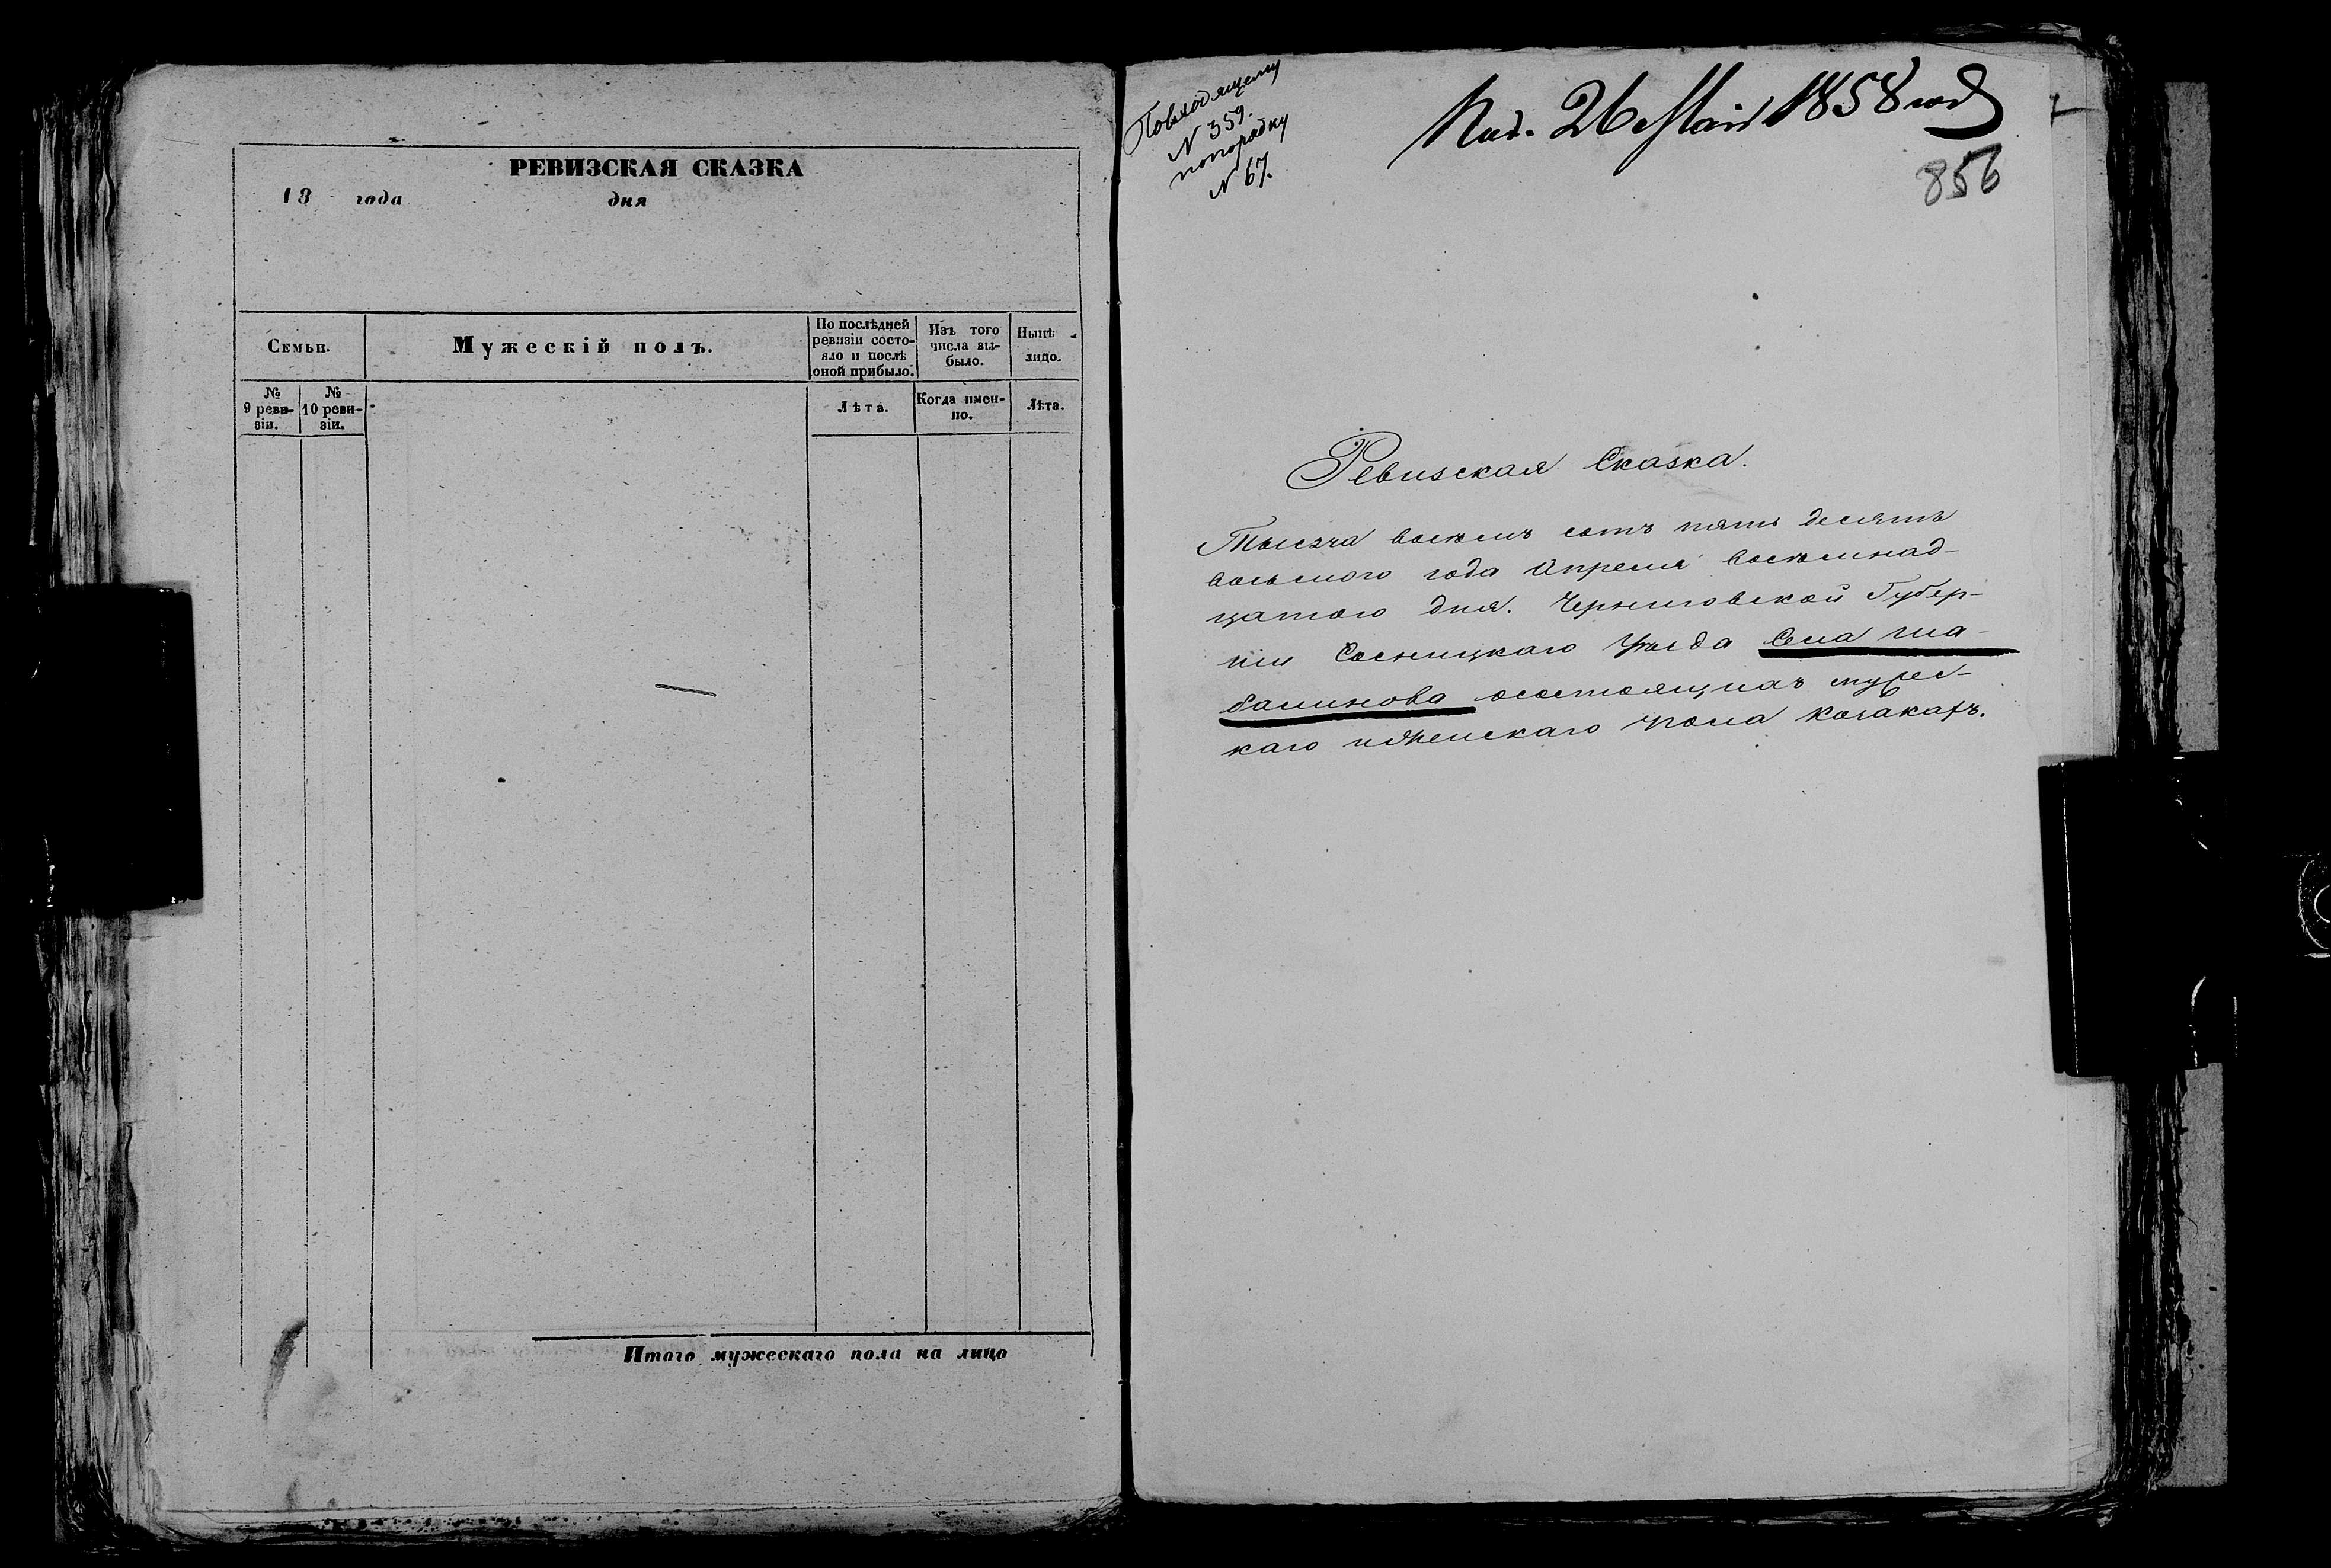 РЕВИЗСКАЯ СКАЗКА
18 года дня
Семьи.
Мужескій полъ.
По послѣдней
ревизіи состо-
яло и послѣ
оной прибыло.
Изъ того
числа вы-
было.
Нынѣ
лицо.
№
9 реви-
зіи.
№
10 реви-
зіи.
Лѣта.
Когда имен-
но.
Лѣта.
Итого мужескаго пола на лицо
Повходящему
N 359.
попорядку
N 67.
26 Мая 1858 года
856
Ревизская Сказка.
Тысяча восемь сотъ пять десятъ
восьмого года Апреля восемнад-
цатого дня. Черниговской Губер-
ніи Сосницкаго уезда Села
осостоящихъ мужес-
каго иженскаго пола козакахъ.